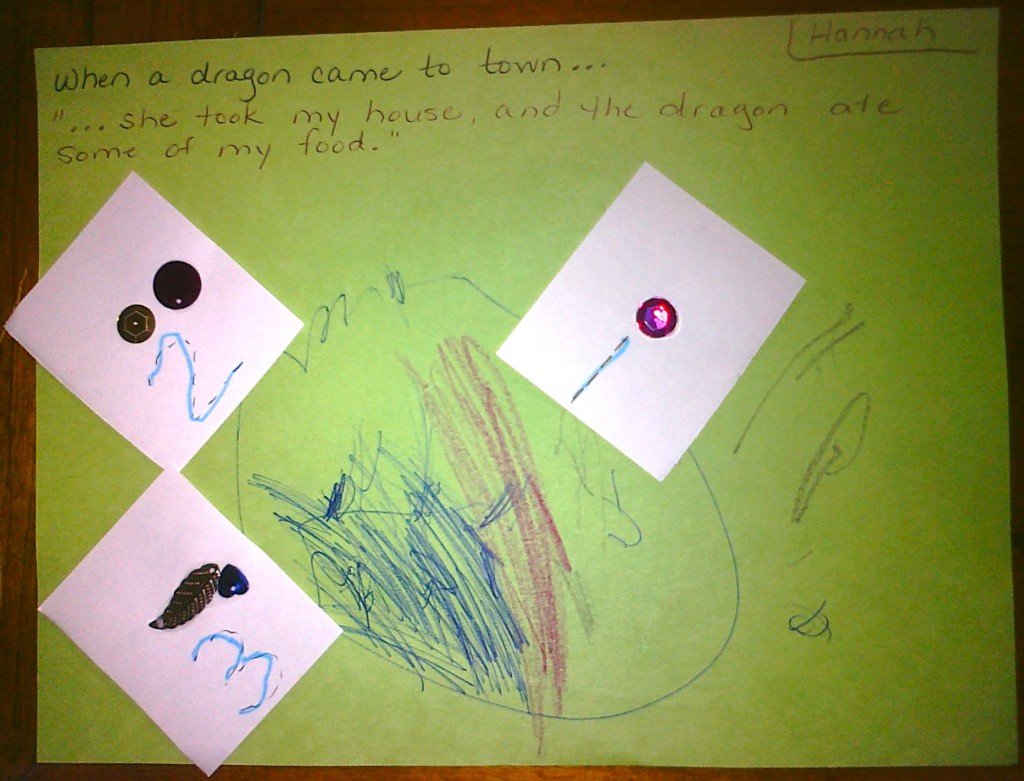 Hannah
When a dragon came to town...
"... she took my house, and the dragon ate
some of my food."
1
2
3